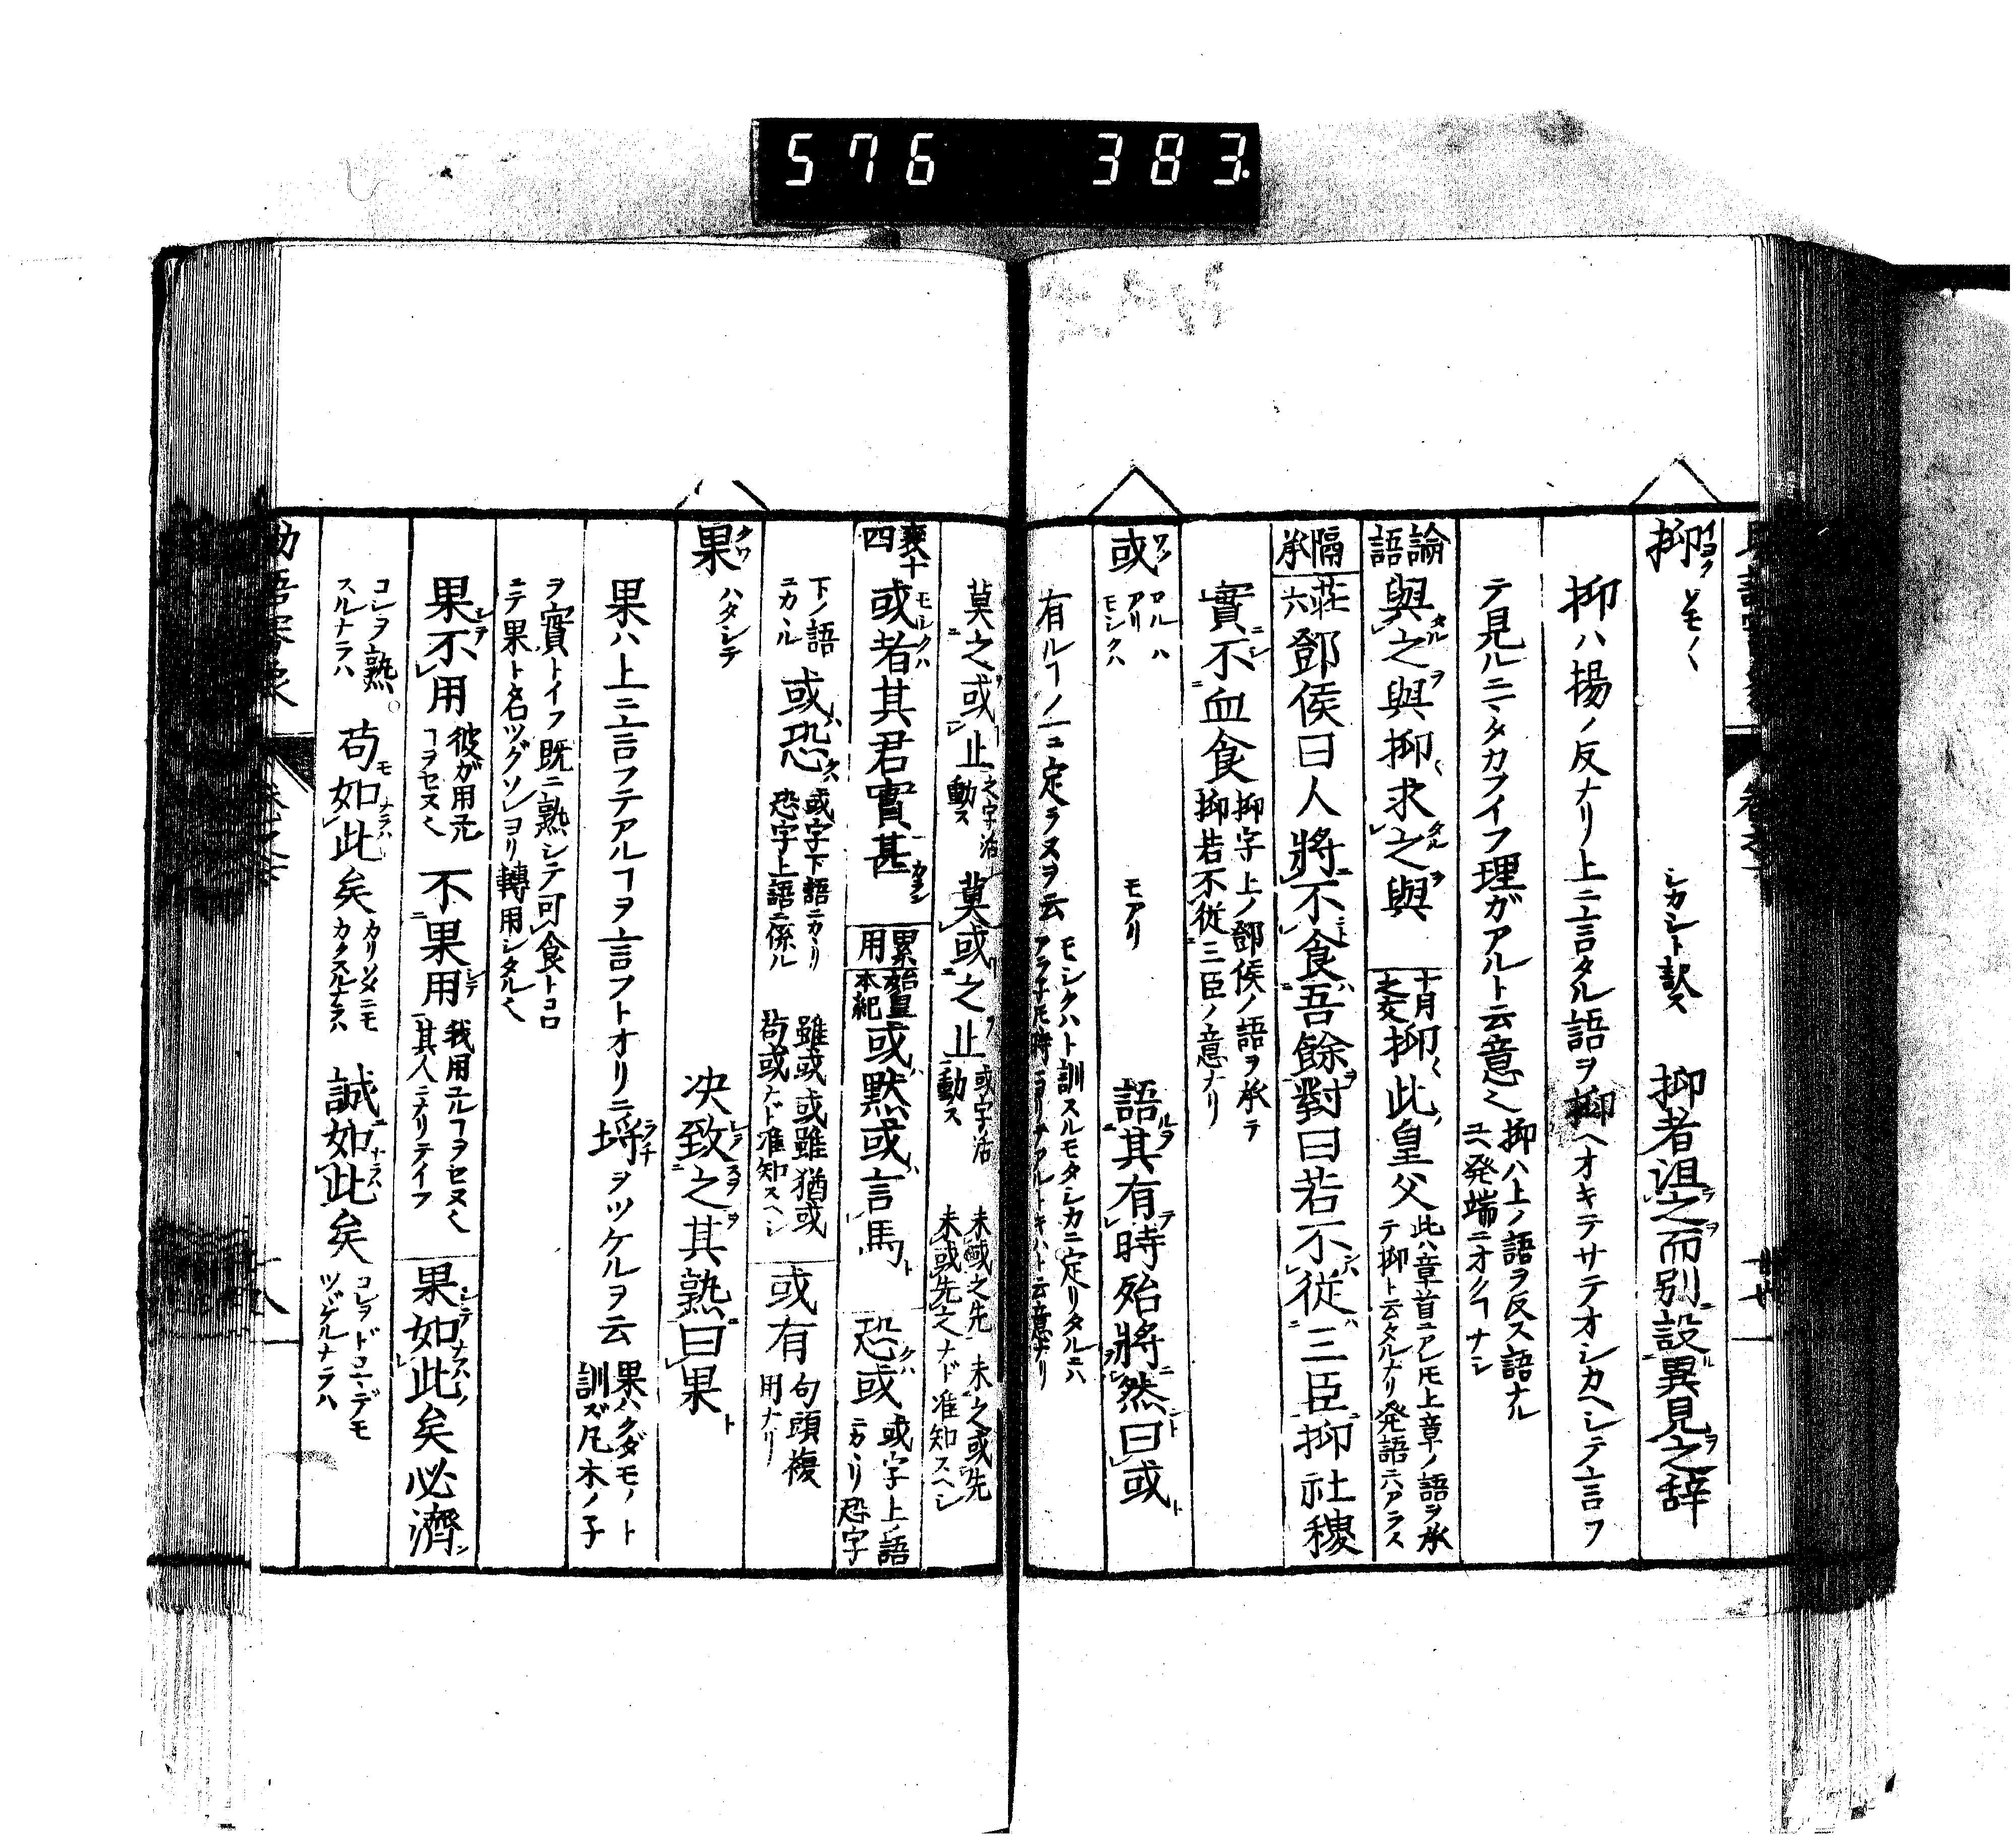 576 383
抑 ソモ〳〵 シカシト訳ス 抑者沮之而別設異見之辞
抑ハ揚ノ反ナリ上ニ言タル語ヲ抑ヘオキテサテオシカヘシテ言フ
テ見ルニマタカフイフ理ガアルト云意 抑ハ上ノ語ヲ反ス語ナル
ユヘ発端ニオクヿナシ
論語 與之與抑求之與 十月之交 抑此皇父 此ハ章首ニアレ𪜈上章ノ語ヲ承
テ抑ト云タルナリ発語ニハアラス
隔承 莊六 鄧侯曰人將不食吾餘對曰若不従三臣抑社稷
實不血食 抑字上ノ鄧侯ノ語ヲ承テ
抑若不従三臣ノ意ナリ
或 アルハ アリ モシクハ モアリ 語其有時殆將然曰或
有ルヿノ一ニ定ラヌヲ云 モシクハト訓スルモタシカニ定リタルニハ
莫之或止 之字活動ス 莫或之止 或字活動ス 未或之先 未之或先
未或先之ナド准知スヘシ
哀十四 或者其君實甚 累用 始皇本紀 或黙或言馬 恐或 或字上ノ語
ニカヽリ恐字
下ノ語ニカヽル 或恐 或字下語ニカヽリ
恐字上語ニ係ル 雖或或雖猶或
苟或ナド准知スヘシ 或有 句頭複用ナリ
果 クワ ハタシテ 决致之其熟曰果
果ハ上ニ言フテアルヿヲ言フトオリニ埒ヲツケルヲ云 果ハクダモノト
訓ズ凡木ノ子
ヲ實トイフ既ニ熟シテ可食トコロ
ニテ果ト名ツグソレヨリ轉用シタル
果不用 彼が用ル
ヿヲセヌ 不果用 我用ユルヿヲセヌ
其人ニナリテイフ 果如此矣必濟
コレヲ熟
スルナラハ 苟如此矣 カリソメニモ
カクスルナラハ 誠如此矣 コレヲドコマデモ
ツヾゲルナラハ